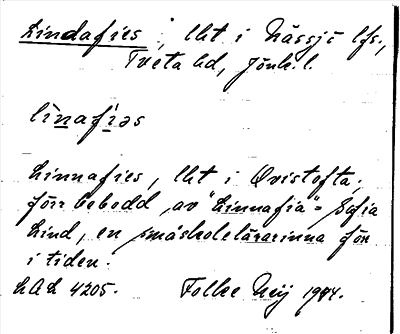 Lindafies, lht i Nässjö lfs.,
Tveta hd, Jönk. l.
lìnafi̇́əs
Linnafies, lht i Qvistofta,
förr bebodd av "Linnafia" = Sofia
Lind, en småskolelärarinna förr
i tiden.
LAL 4205. Folke Meij 1944.